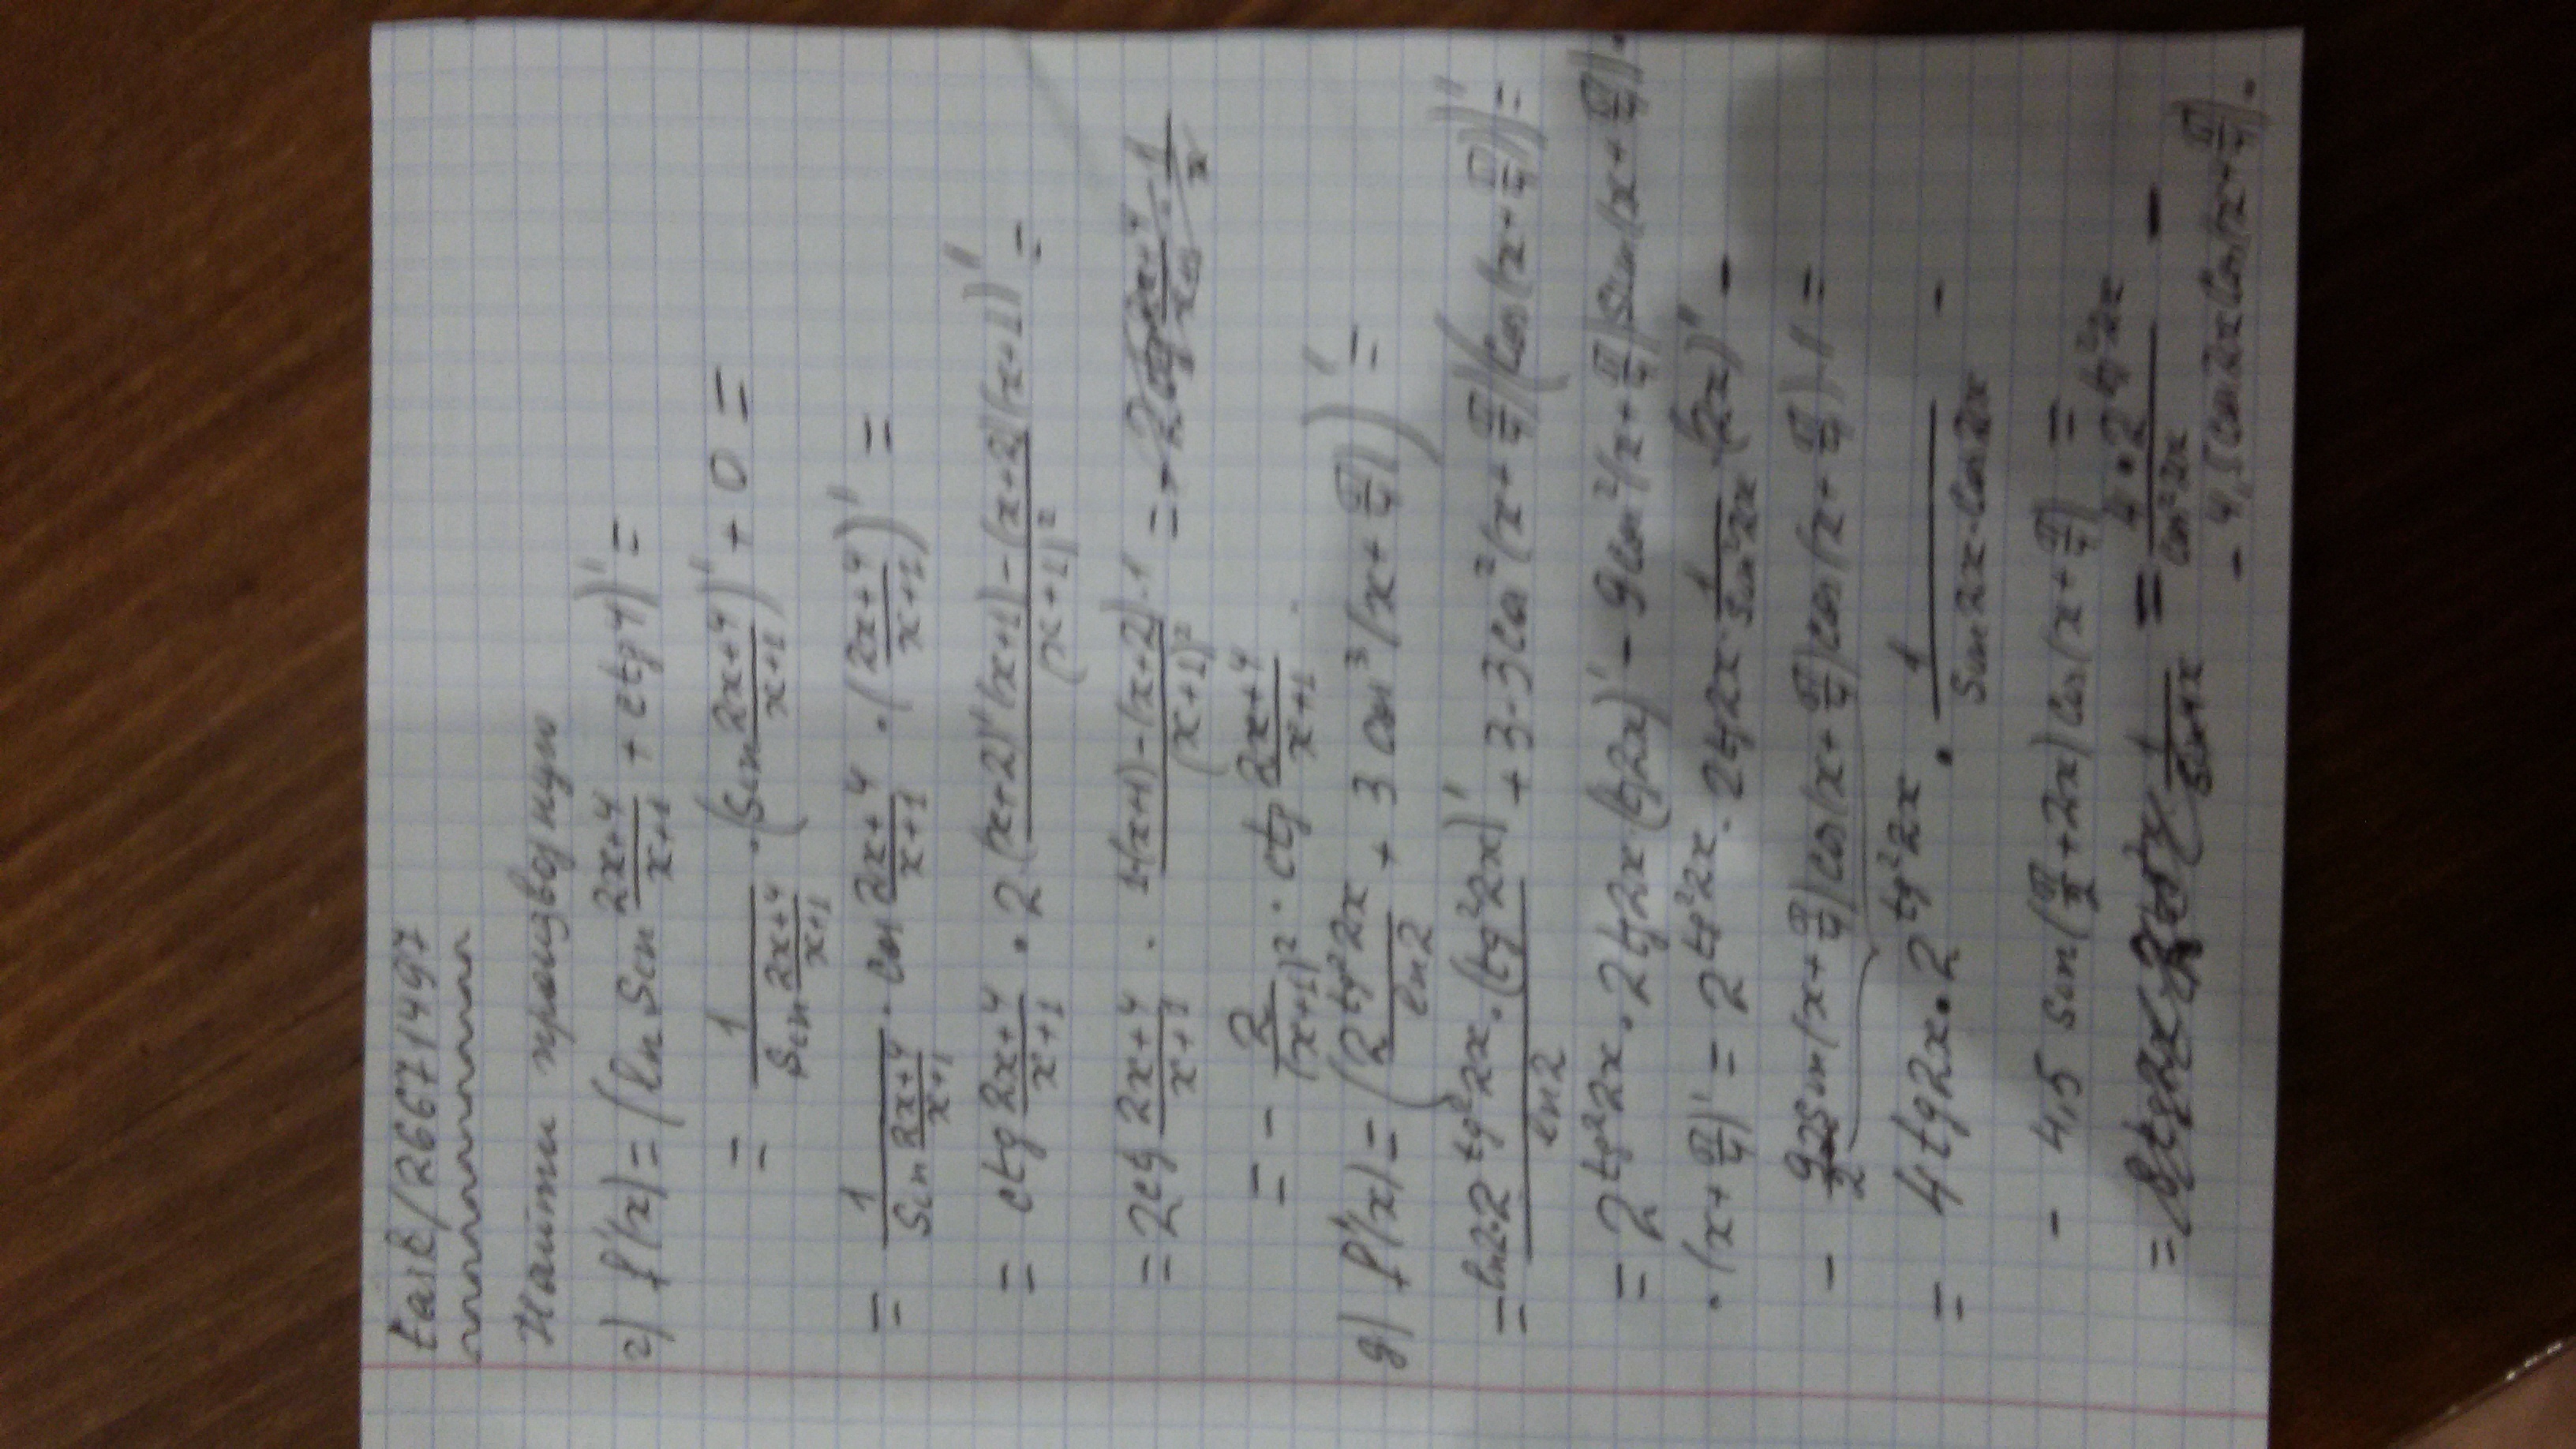 task/26671497
Найти производную
г) f'(x) = (ln sin (2x+4)/(x+1) + ctg 4)' =
= 1/(sin (2x+4)/(x+1)) · (sin (2x+4)/(x+1))' + 0 =
= 1/(sin (2x+4)/(x+1)) · cos (2x+4)/(x+1) · ((2x+4)/(x+1))' =
= ctg (2x+4)/(x+1) · 2 · ((x+2)'(x+1) - (x+2)(x+1)')/(x+1)² =
= 2ctg (2x+4)/(x+1) · (1·(x+1) - (x+2)·1)/(x+1)² =
= - 2/(x+1)² · ctg (2x+4)/(x+1).
д) f'(x) = (2^(tg²2x)/ln2 + 3cos³(x+π/4))' =
= ln2·2^(tg²2x)·(tg²2x)'/ln2 + 3·3cos²(x+π/4)(cos(x+π/4))' =
= 2^(tg²2x)·2tg2x·(tg2x)' - 9cos²(x+π/4)sin(x+π/4)·
·(x+π/4)' = 2^(tg²2x)·2tg2x·1/sin²2x·(2x)' -
- 9/2·2sin(x+π/4)cos(x+π/4)cos(x+π/4)·1 =
= 4tg2x·2^(tg²2x) · 1/(sin2x·cos2x) -
- 4,5 sin(π/2+2x)cos(x+π/4) =
= 4·2^(tg²2x)/cos²2x -
- 4,5cos2xcos(x+π/4).